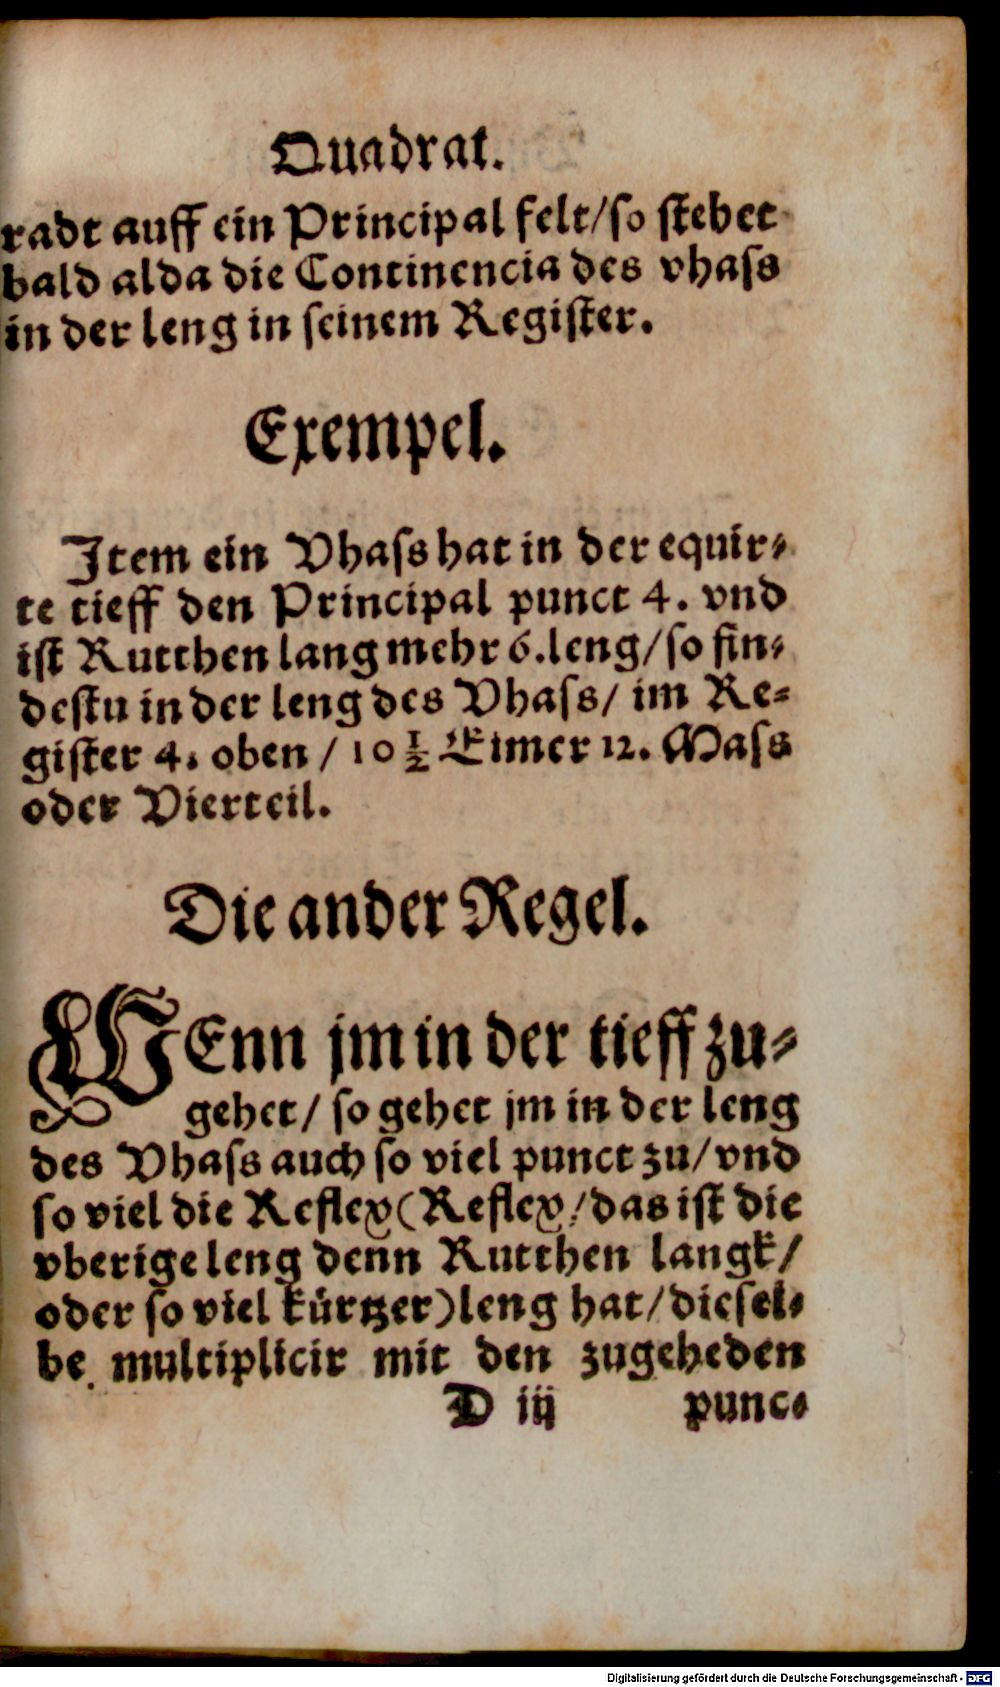 Quadrat.
radt auff ein Principal felt/so stehet
bald alda die Continencia des vhass
in der leng in seinem Register.
Exempel.
Item ein Vhass hat in der equir⸗
te tieff den Principal punct 4. vnd
ist Rutthen lang mehr 6.leng/so fin⸗
destu in der leng des Vhass/ im Re⸗
gister 4. oben / 10 1/2 Eimer 12. Mass
oder Vierteil.
Die ander Regel.
WEnn jm in der tieff zu⸗
gehet/ so gehet jm in der leng
des Vhass auch so viel punct zu/vnd
so viel die Reflex(Reflex/das ist die
vberige leng denn Rutthen langk/
oder so viel kürtzer)leng hat/diesel⸗
be multiplicir mit den zugeheden
D iij punc⸗
Digitalisierung gefördert durch die Deutsche Forschungsgemeinschaft - DFG